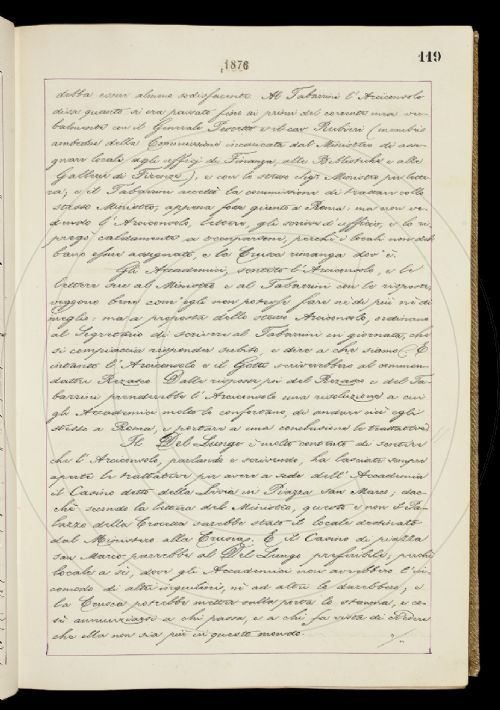 119
1876
debba esser almeno sodisfacente. Al Tabarrini l'Arciconsolo
disse quanto si era passato fino ai primi del corrente mese ver-
balmente con il Generale e il cav. Barbèri (membri
ambedue della Commissione incaricata dal Ministero di asse-
gnare locali agli uffizj di Finanza, alle Biblioteche e alle
Gallerie di Firenze), e con lo stesso Sigr Ministro per lette-
ra; e il Tabarrini accettò la commissione di trattare collo
stesso Ministro, appena fosse giunto a Roma: ma non ve-
dendo l'Arciconsolo, lettere, gli scrisse d'uffizio, e lo ri-
pregò caldamente a occuparsene, perchè i locali non deb-
bano essere assegnati, e la Crusca rimanga dov'è.
Gli Accademici, sentito l'Arciconsolo, e le
lettere sue al Ministro e al Tabarrini con le risposte,
veggono bene com'egli non potesse fare nè di più nè di
meglio: ma a proposta dello stesso Arciconsolo, ordinano
al Segretario di scrivere al Tabarrini in giornata, che
si compiaccia rispondere subito, e dire a che siamo. E
intanto l'Arciconsolo e il Gotti scriverebbero al commen-
datore Rezasco. Dalla risposta poi del Rezasco e del Ta-
barrini prenderebbe l'Arciconsolo una risoluzione a cui
gli Accademici molto lo confortano, di andare cioè egli
stesso a Roma, e portare a una conclusione le trattative.
Il Del Lungo è molto contento di sentire
che l'Arciconsolo, parlando e scrivendo, ha lasciato sempre
aperte le trattative per avere a sede dell'Accademia
il Casino detto della Livia in Piazza San Marco; dac-
chè secondo la lettera del Ministro, questo e non il Pa-
lazzo della Crocetta sarebbe stato il locale destinato
dal Ministero alla Crusca. E il Casino di piazza
San Marco parrebbe al Del Lungo preferibile; perchè
locale a sè, dove gli Accademici non avrebbero l'in-
comodo di altri inquilini, nè ad altri lo darebbero, e
la Crusca potrebbe metter sulla porta lo stemma, e co-
sì annunziarsi a chi passa, e a chi fa vista di credere
che ella non sia più in questo mondo.